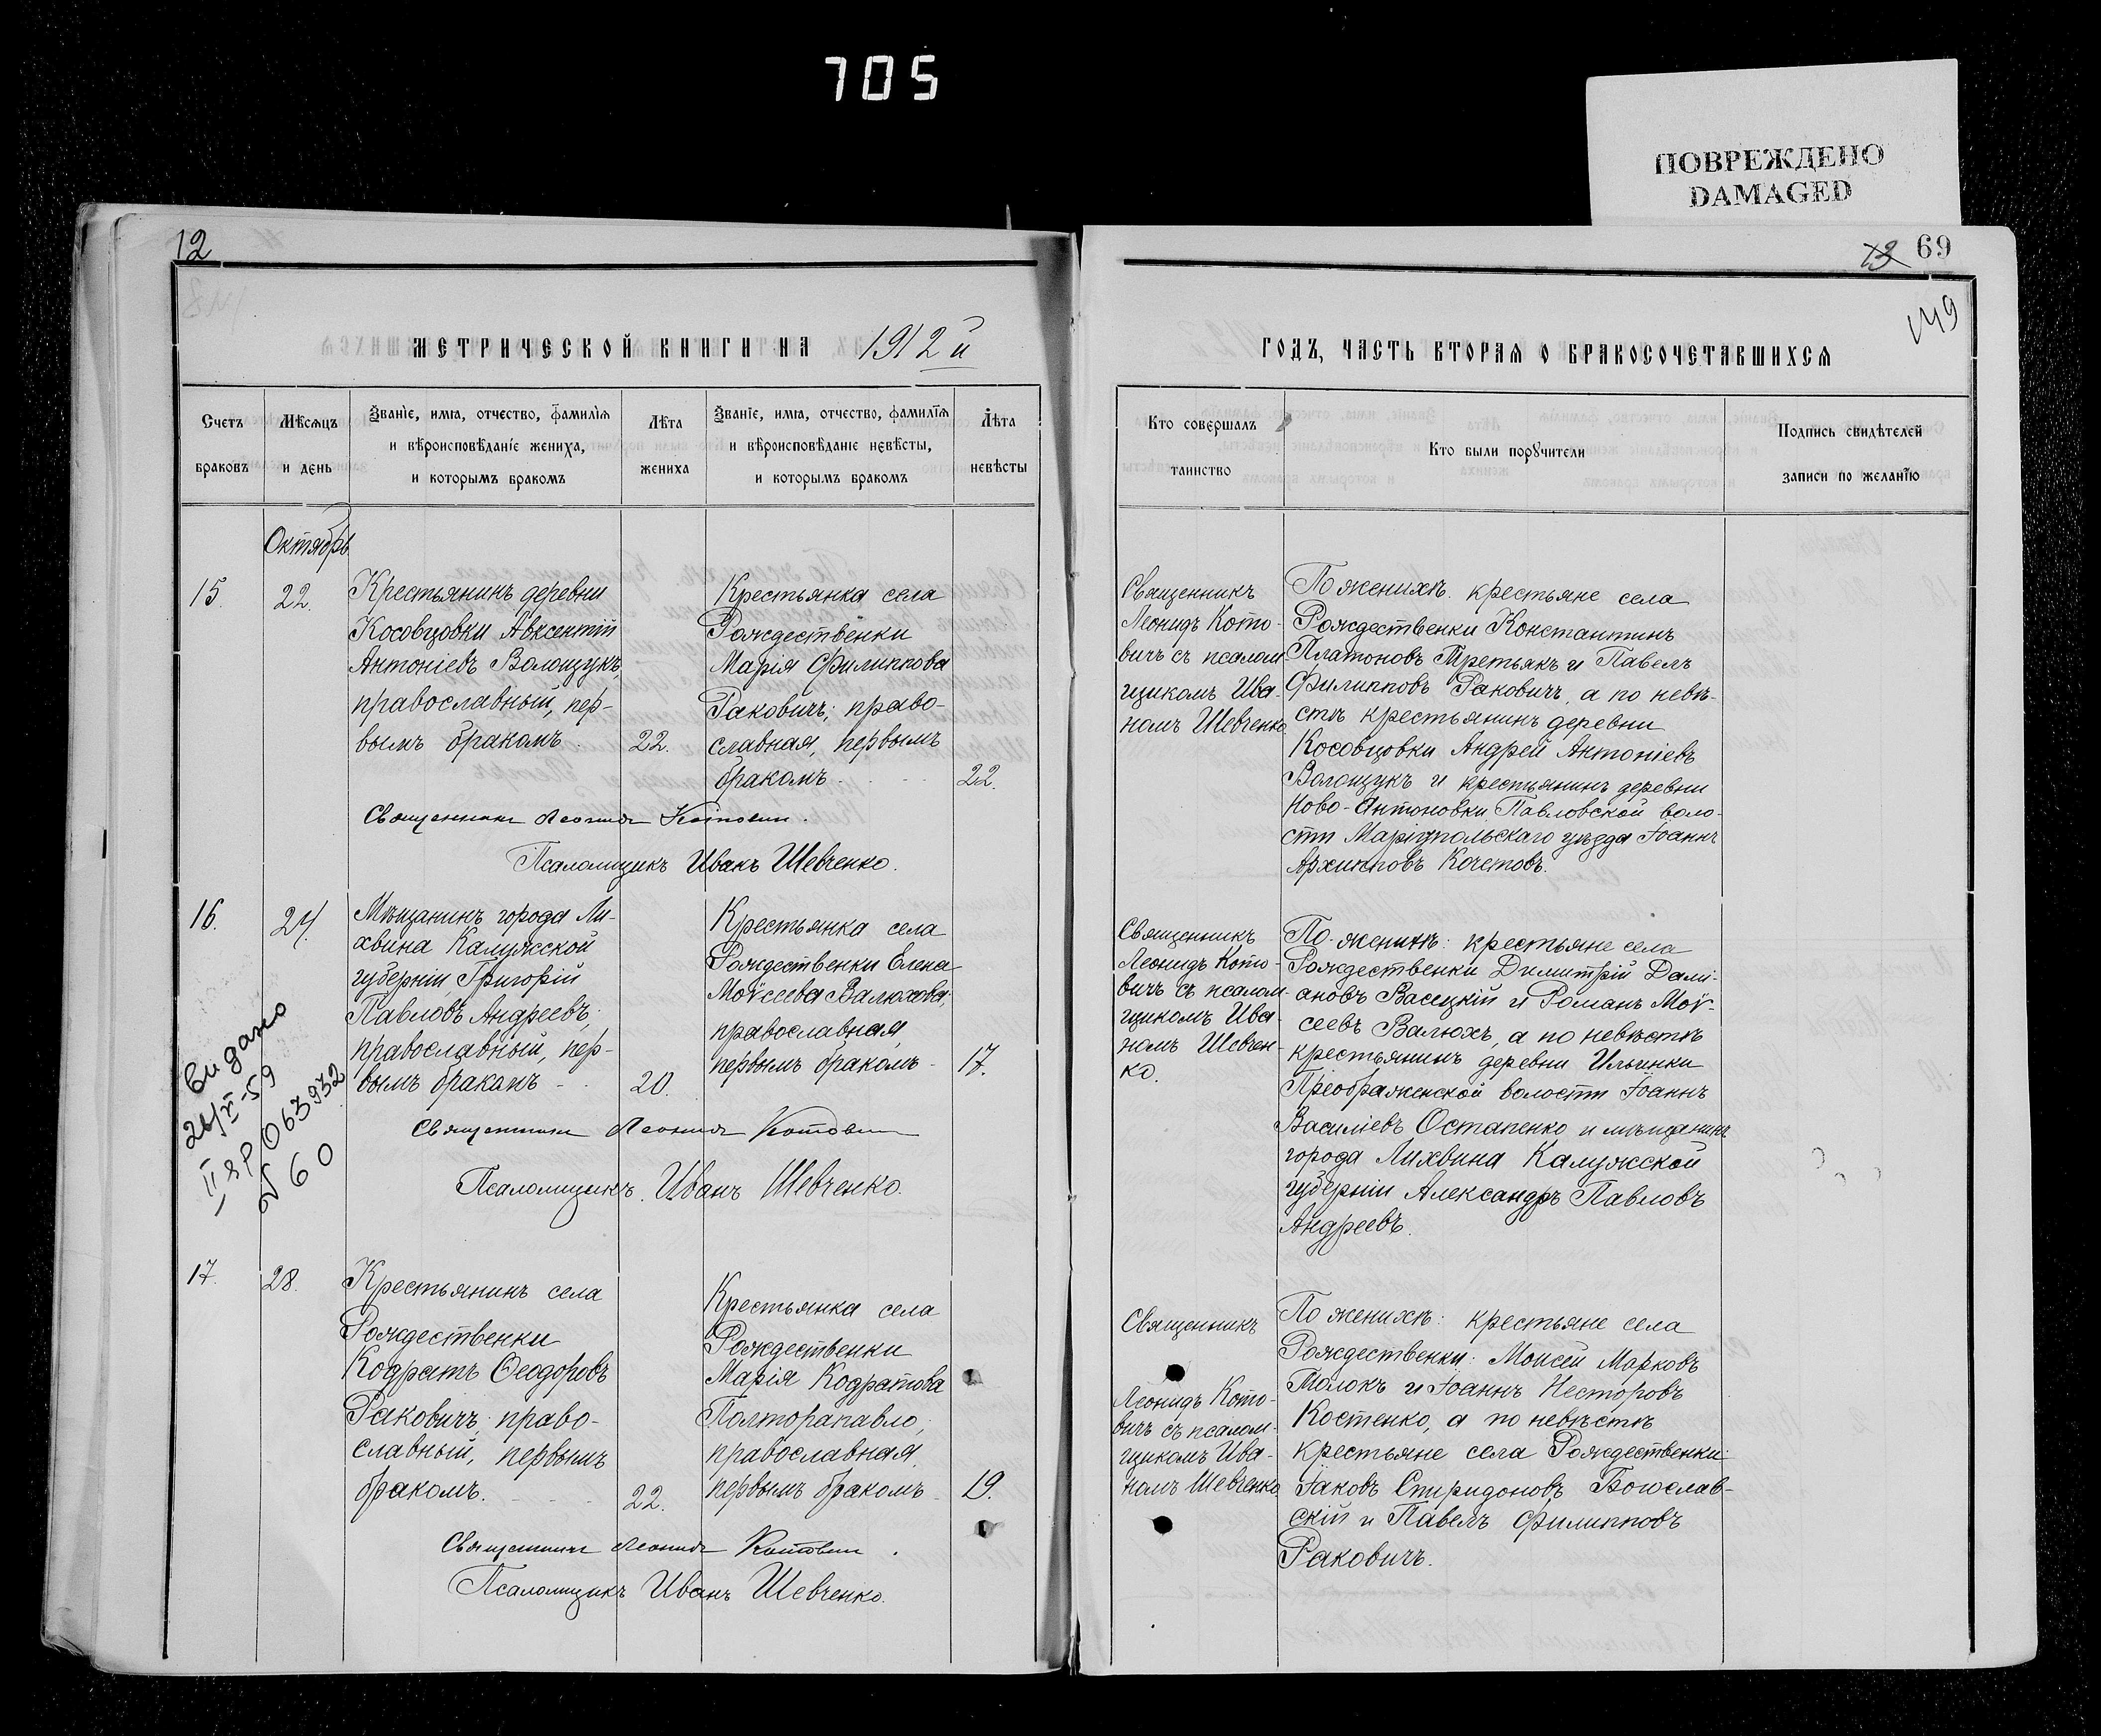 705
ПОВРЕЖДЕНО
DAMAGED
12
МЕТРИЧЕСКОЙ КНИГИ НА 1912й
Счетъ
браковъ
Мѣсяцъ
и день
Званіе, имя, отчество, фамилія
и вѣроисповѣданіе жениха,
и которымъ бракомъ
Лѣта
жениха
Званіе, имя, отчество, фамилія
и вѣроисповѣданіе невѣсты,
и которымъ бракомъ
Лѣта
невѣсты
Октябрь
15.
22.
Крестьянинъ деревни
Косовцовки Авксентій
Антоніевъ Волощукъ,
православный, пер-
вымъ бракомъ.
22.
Крестьянка села
Рождественки
Марія Филиппова
Раковичъ; право-
славная, первымъ
бракомъ
22.
Священникъ Леонидъ Котович.
Псаломщикъ Иванъ Шевченко.
16.
24.
Мѣщанинъ города Ли-
хвина Калужской
губерніи Григорій
Павловъ Андреевъ;
православный, пер-
вымъ бракомъ
20.
Крестьянка села
Рождественки Елена
Моѵсеева Валюхова;
православная,
первымъ бракомъ
17.
Священникъ Леонидъ Котович
Псаломщикъ Иванъ Шевченко.
Видано
26/XI-59
II ЯР 063932
N 60
17.
28.
Крестьянинъ села
Рождественки
Кодратъ Ѳеодоровъ
Раковичъ; право-
славный, первымъ
бракомъ.
22.
Крестьянка села
Рождественки
Марія Кодратова
Полторапавло;
православная,
первымъ бракомъ
19.
Священникъ Леонидъ Котович.
Псаломщикъ Иванъ Шевченко.
13 69
149
ГОДЪ, ЧАСТЬ ВТОРАЯ О БРАКОСОЧЕТАВШИХСЯ
Кто совершалъ
таинство
Кто были порꙋчители
Подпись свидѣтелей
записи по желанїю
Священникъ
Леонидъ Кото-
вичъ съ псалом-
щикомъ Ива-
номъ Шевченко
По женихѣ: крестьяне села
Рождественки Константинъ
Платоновъ Третьякъ и Павелъ
Филипповъ Раковичъ, а по невѣ-
стѣ крестьянинъ деревни
Косовцовки Андрей Антоніевъ
Волощукъ и крестьянинъ деревни
Ново-Антоновки Павловской воло-
сти Маріупольскаго уѣзда Іоаннъ
Архипповъ Кочетовъ.
Священникъ
Леонидъ Кото-
вичъ съ псалом-
щикомъ Ива-
номъ Шевчен-
ко.
По женихѣ: крестьяне села
Рождественки Димитрій Дамі-
ановъ Васецкій и Романъ Моѵ-
сеевъ Валюхъ, а по невѣстѣ
крестьянинъ деревни Ильинки
Преображенской волости Іоаннъ
Василіевъ Остапенко и мѣщанинъ
города Лихвина Калужской
губерніи Александръ Павловъ
Андреевъ.
Священникъ
Леонидъ Кото-
вичъ съ псалом-
щикомъ Ива-
номъ Шевченко
По женихѣ: крестьяне села
Рождественки: Моисей Марковъ
Толокъ и Іоаннъ Несторовъ
Костенко, а по невѣстѣ
крестьяне села Рождественки
Іаковъ Спиридоновъ Богослав-
скій и Павелъ Филипповъ
Раковичъ.